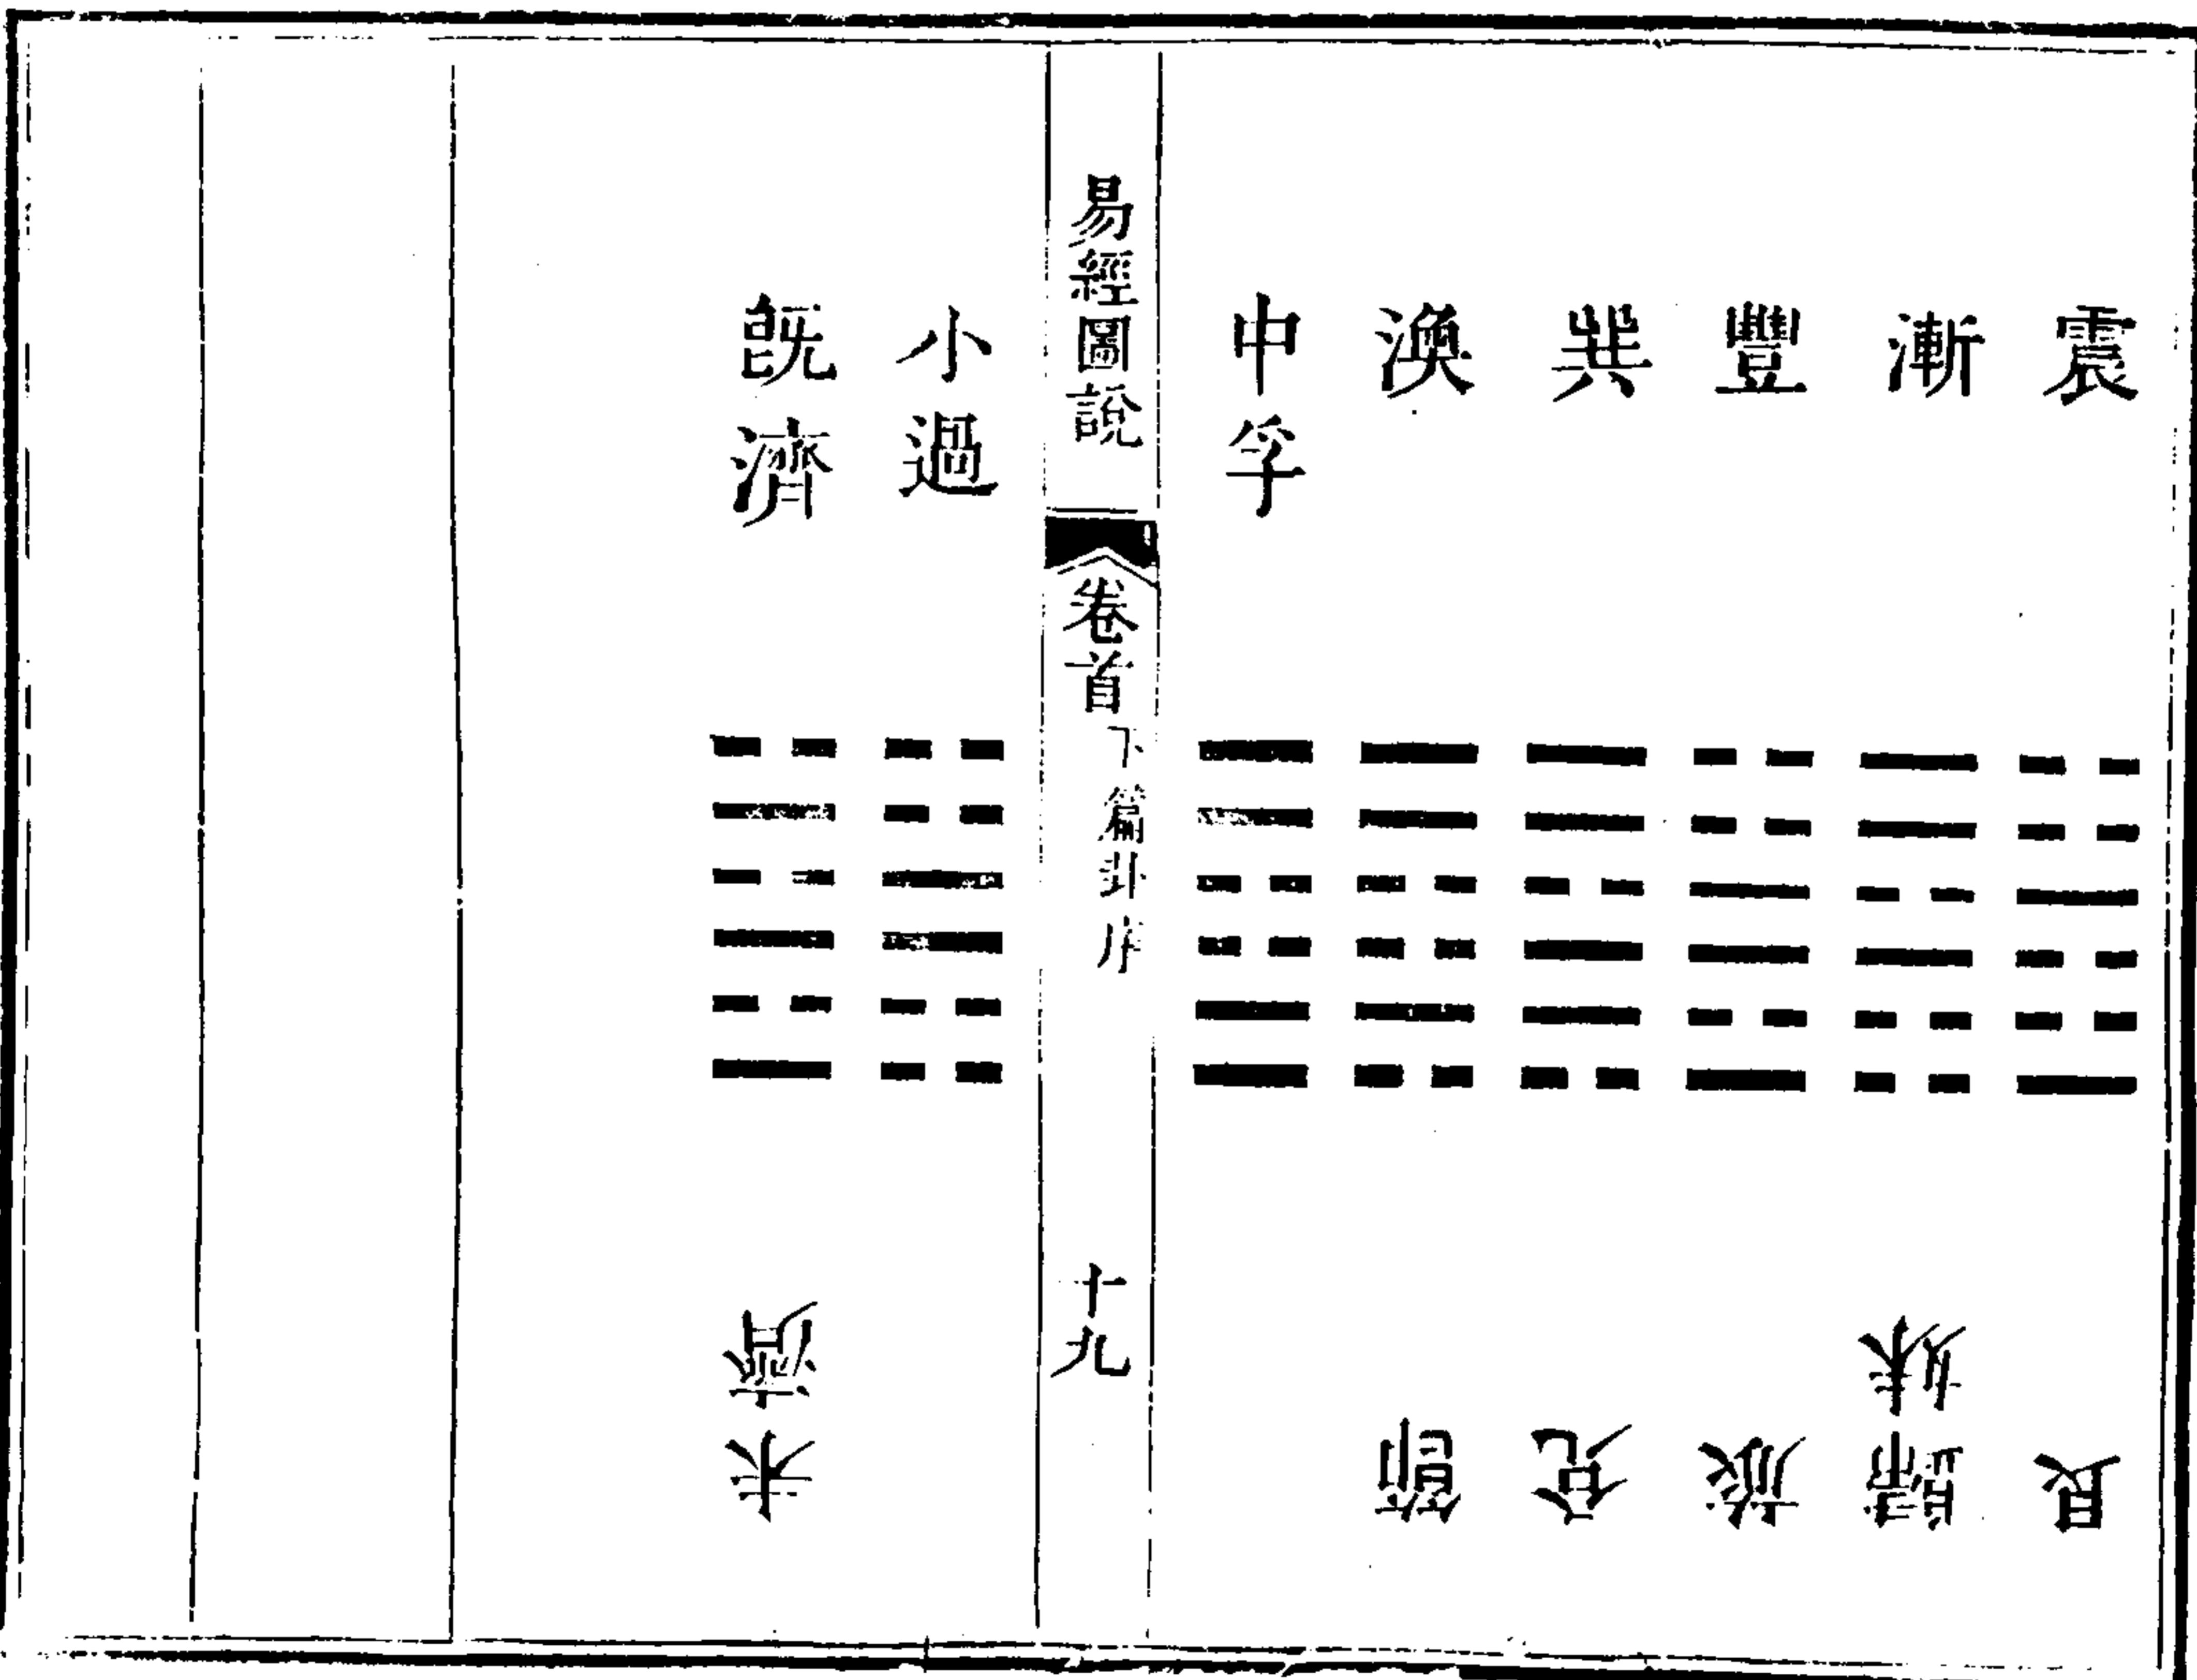 震
艮
漸
歸妹
豐
旅
巽
兌
渙
節
中孚
易經圖說
卷首
下篇卦序
十九
小過
旣濟
未濟